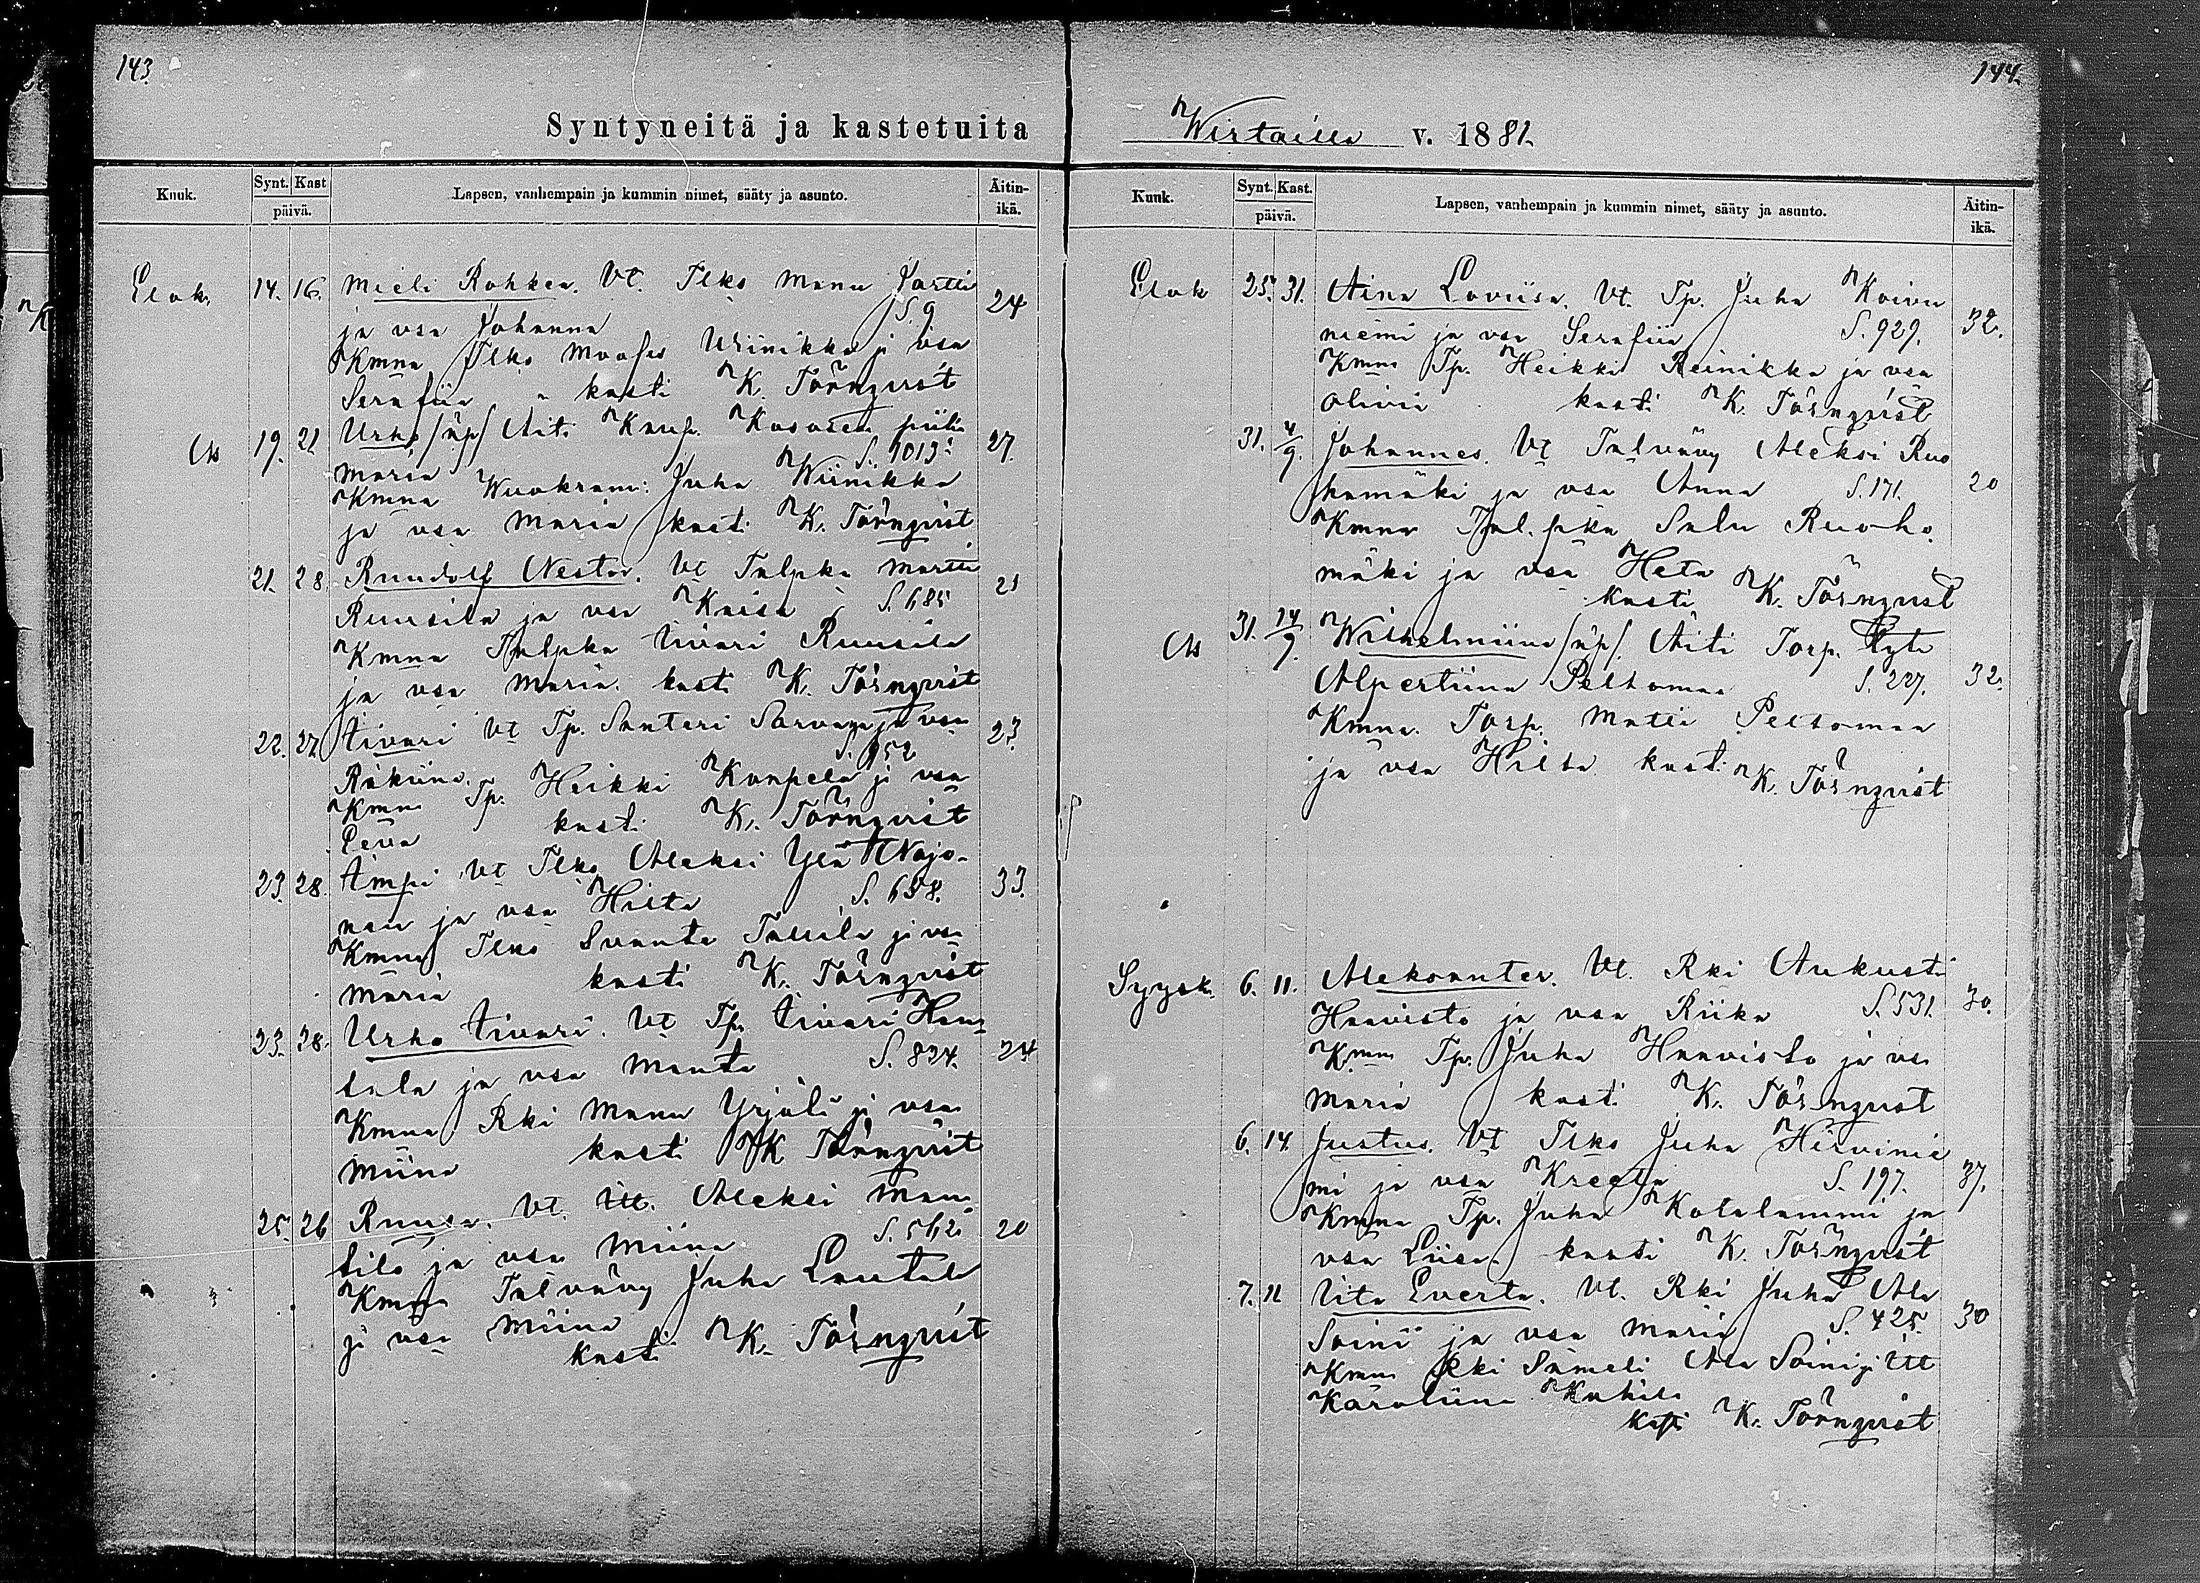 143.
Syntyneitä ja kastetuita
Kuuk. Synt. Kast päivä. Lapsen, vanhempain ja kummin nimet, sääty ja asunto. Äitin-ikä.
Elok. 14. 16. Mieli Rohkea. Vt. Tlko Manu Jartti 24
ja vsa Johanna S. 9
Kmna Tlko Moofes Wiinikka ja vsa
Serafiia kasti K. Törnqvist
19. 21 Urho /äp/ Äiti Kasosen piika 27.
Maria S. 1013
Kmna Juha Wiinikka
ja vsa Maria kasti K. Törnqvist
21. 28. Ruudolf Nestor. Vt Talpka Martti 21
Ruusila ja vsa Kaisa S. 685
Kmna Talpka Iivari Ruusila
ja vsa Maria. kasti K. Törnqvist
22. 27 Iivari Vt Tp. Santeri ja vsa 23.
S. 952
Kmna Tp. Heikki Kanpela ja vsa
Eeva kasti K. Törnqvist
23. 28. Ampi Vt Tlko Aleksi Ylä Najo- 33.
nen ja vsa Hilta S. 658.
Kmna Tlko Svante ja vsa
Maria kasti K. Törnqvist
23. 28. Urho Iivari. Vt Tp. Iivari Han- 24
sala ja vsa Manta S. 824.
Kmna Rki Manu Yrjälä ja vsa
Miina kasti K Törnqvist
25. 26 Ruusa. Vt. Itt. Aleksi Man- 20
sila ja vsa Miina S. 562
Kmna Talvävy Juha Lautala
ja vsa Miina
kasti K. Törnqvist
144.
Wirtailla v. 1881.
Kuuk. Synt. Kast. päivä. Lapsen, vanhempain ja kummin nimet, sääty ja asunto. Äitin-ikä.
Elok 25. 31. Aina Loviisa. Vt. Tp. Juha Koivu
niemi ja vsa Serafiia S. 929. 32.
Kmna Tp. Heikki Reinikka ja vsa
Olivia kasti K. Törnqvist
31. 4/9. Johannes. Vt Talvävy Aleksi Ruo
hamäki ja vsa Anna S. 171. 20
Kmna Tal. pka Salu Ruoho
mäki ja vsa Heta
kasti K. Törnqvist
31. 14/9. Wilhelmiina /äp/. Äiti Torp. Tytr
Alpertiina Peltomaa S. 227. 32.
Kmna. Torp. Matti Peltomaa
ja vsa Hilta kasti K. Törnqvist
Syysk. 6. 11. Aleksanter. Vt. Rki Aukusti
Haavisto ja vsa Riika S. 531. 30.
Kmna Tp. Juha Haavisto ja vsa
Maria kasti K. Törnqvist
6. 14. Justus. Vt Tlko Juha Hirvinie
mi ja vsa Kreeta S. 197. 37.
Kmna Tp. Juha Kotalammi ja
vsa Liisa. kasti K. Törnqvist
7. 11 Iita Everta. Vt. Rki Juha Ala
Soini ja vsa Maria S. 425. 30
Kmna Rki Sameli Ala Soini ja Itt
Karoliina
Kasti K. Törnqvist